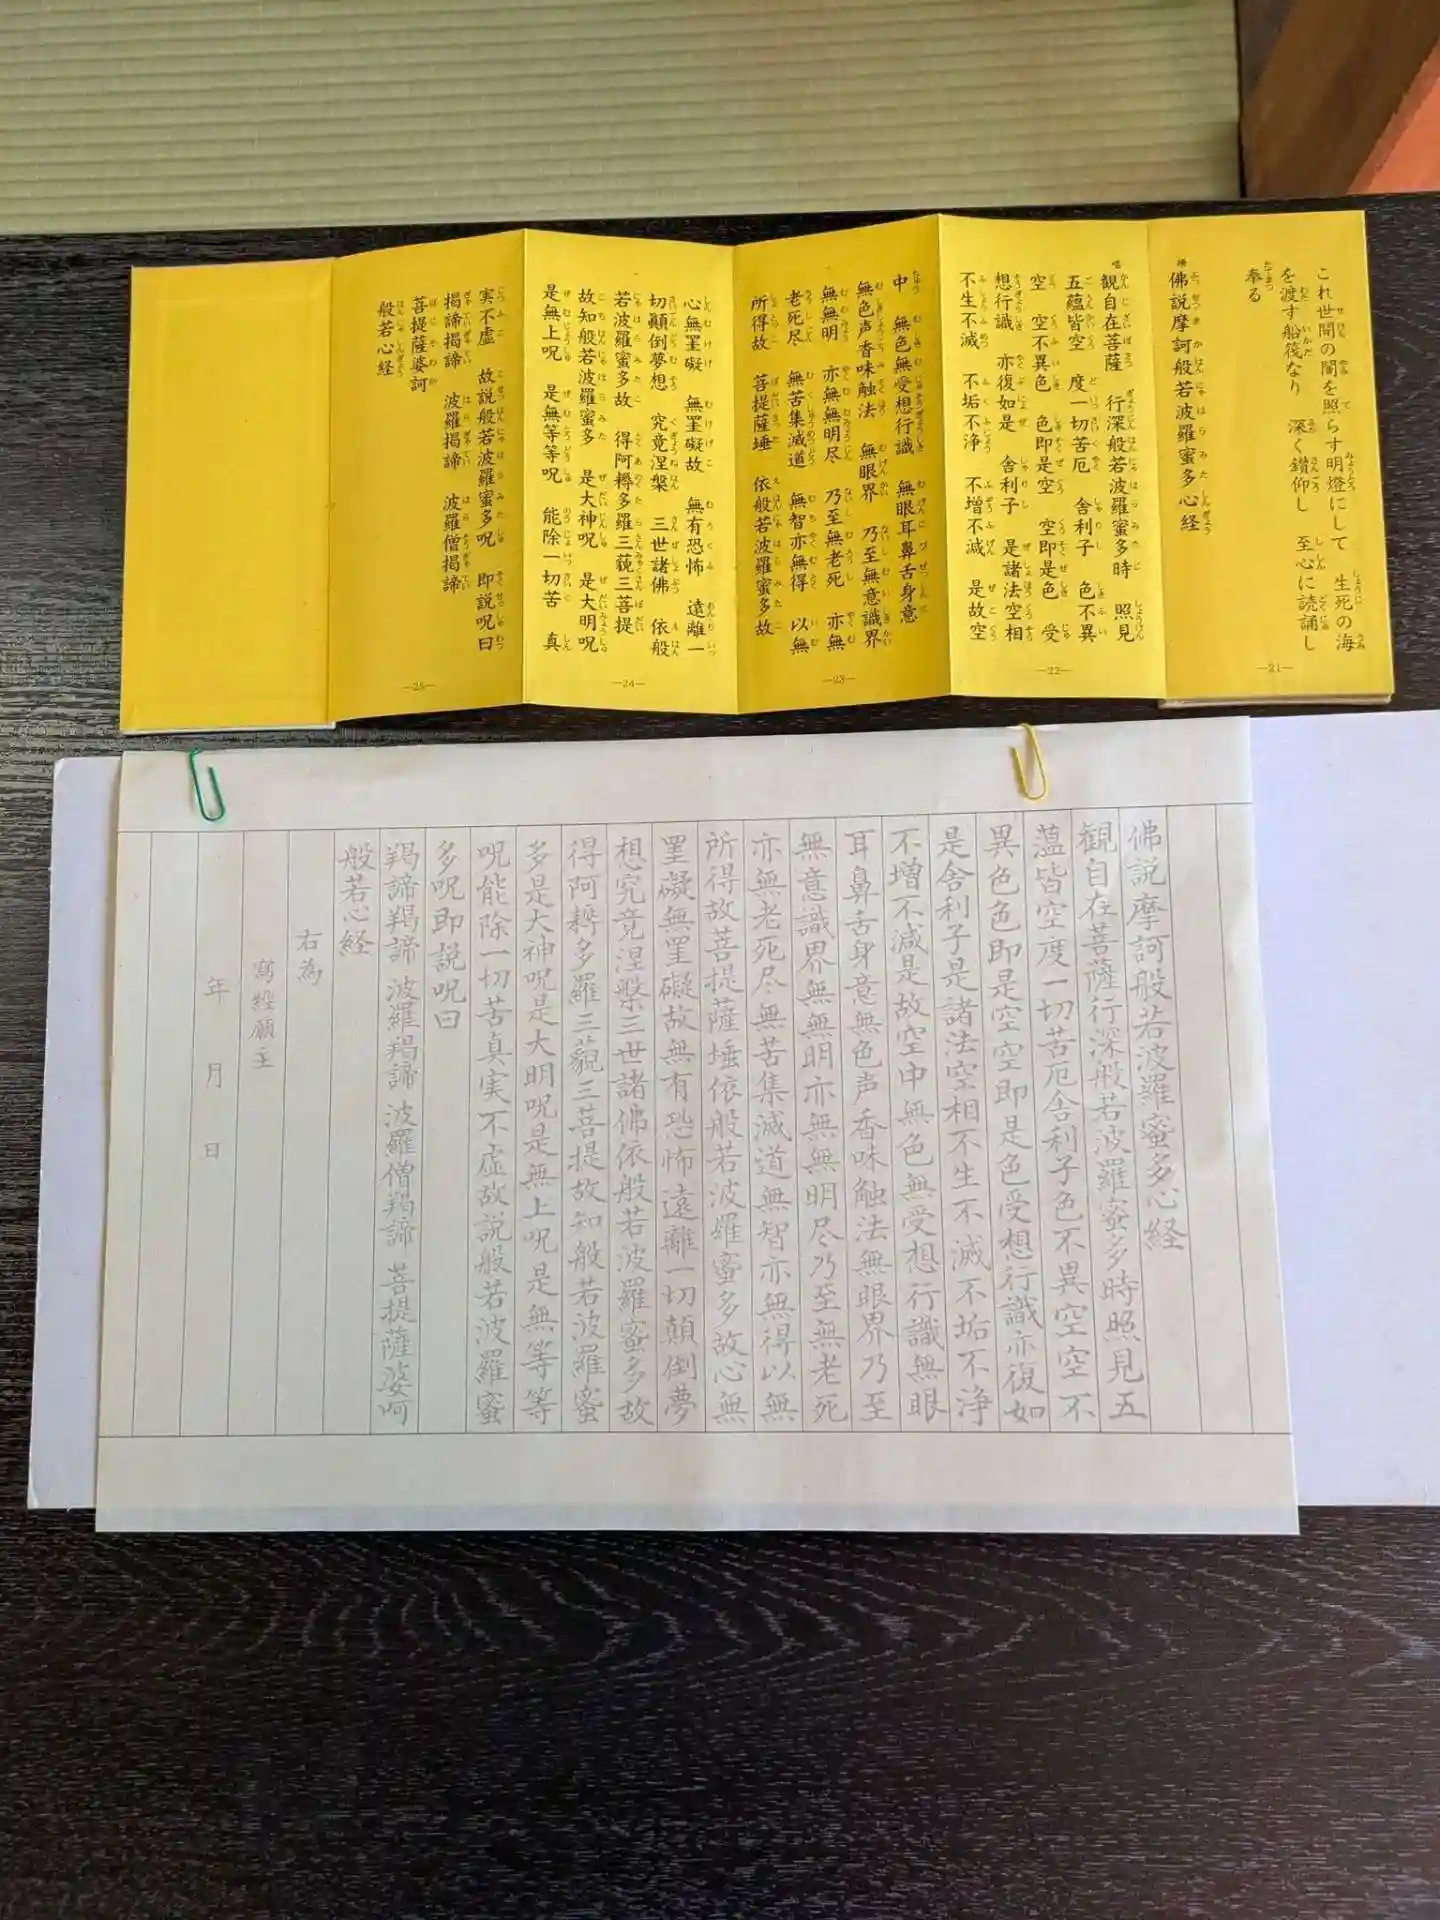 これ世間の闇を照らす明燈にして 生死の海
を渡す船筏なり 深く鑽仰し 至心に読誦し
奉る
佛説摩訶般若波羅蜜多心経
—21—
観自在菩薩 行深般若波羅蜜多時 照見
五蘊皆空 度一切苦厄 舎利子 色不異
空 空不異色 色即是空 空即是色 受
想行識 亦復如是 舎利子 是諸法空相
不生不滅 不垢不浄 不増不減 是故空
—22—
中 無色無受想行識 無眼耳鼻舌身意
無色声香味触法 無眼界 乃至無意識界
無無明 亦無無明尽 乃至無老死 亦無
老死尽 無苦集滅道 無智亦無得 以無
所得故 菩提薩埵 依般若波羅蜜多故
—23—
心無罣礙 無罣礙故 無有恐怖 遠離一
切顛倒夢想 究竟涅槃 三世諸佛 依般
若波羅蜜多故 得阿耨多羅三藐三菩提
故知般若波羅蜜多 是大神呪 是大明呪
是無上呪 是無等等呪 能除一切苦 真
—24—
実不虚 故説般若波羅蜜多呪 即説呪曰
掲諦掲諦 波羅掲諦 波羅僧掲諦
菩提薩婆訶
般若心経
—25—
佛説摩訶般若波羅蜜多心経
観自在菩薩行深般若波羅蜜多時照見五
蘊皆空度一切苦厄舎利子色不異空空不
異色色即是空空即是色受想行識亦復如
是舎利子是諸法空相不生不滅不垢不浄
不増不減是故空中無色無受想行識無眼
耳鼻舌身意無色声香味触法無眼界乃至
無意識界無無明亦無無明尽乃至無老死
亦無老死尽無苦集滅道無智亦無得以無
所得故菩提薩埵依般若波羅蜜多故心無
罣礙無罣礙故無有恐怖遠離一切顛倒夢
想究竟涅槃三世諸佛依般若波羅蜜多故
得阿耨多羅三藐三菩提故知般若波羅蜜
多是大神呪是大明呪是無上呪是無等等
呪能除一切苦真実不虚故説般若波羅蜜
多呪即説呪曰
羯諦羯諦 波羅羯諦 波羅僧羯諦 菩提薩婆訶
般若心経
右為
寫経願主
年 月 日